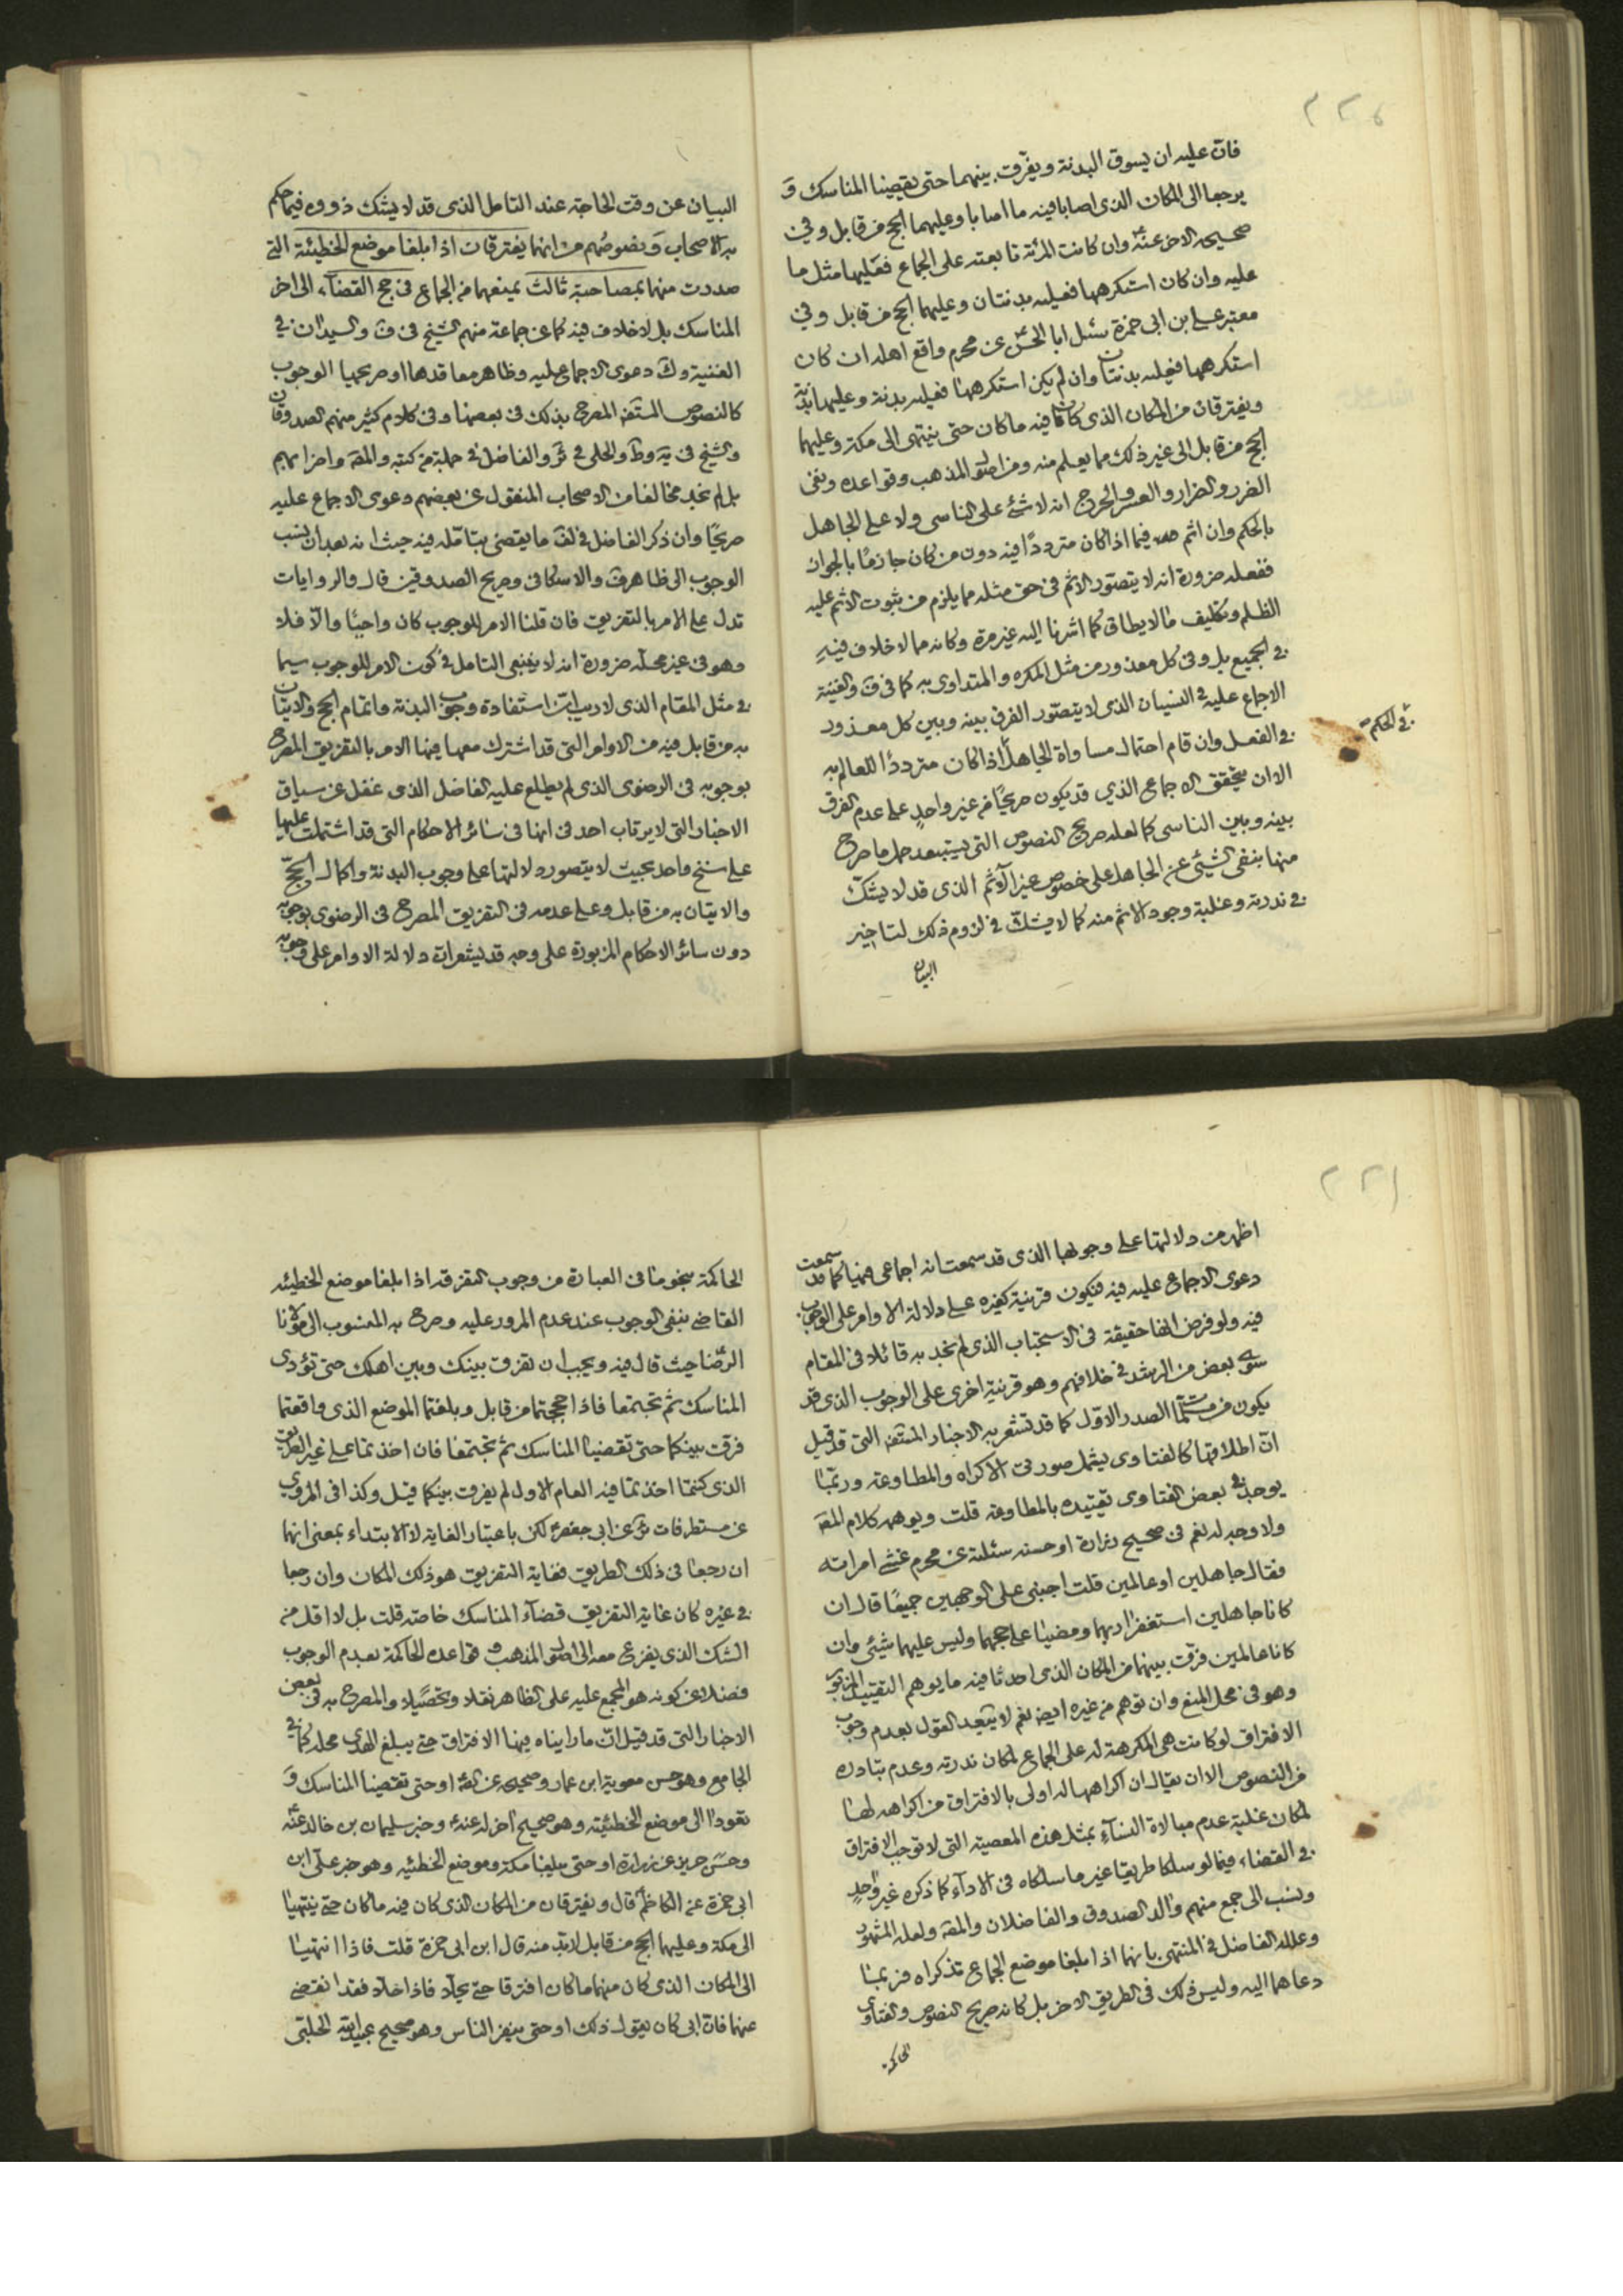 ٢٢٠
فان عليه ان يسوق البدنة ويفرق بينهما حتى يقضينا المناسك و
يرجعا الى المكان الذى اصابا فيه ما اصابا وعليهما الحج من قابل وفى
صحيحه الاخر عنه وان كانت المرئة تابعته على الجماع فعليها مثل ما
عليه وان كان استكرهها فعليه بدنتان وعليهما الحج من قابل وفى
معتبر على بن ابى حمزة سئل ابا الحسن عن محرم واقع اهله ان كان
استكرهها فعليه بدنتان وان لم يكن استكرهها فعليه بدنة وعليها بدنة
ويفترقان من المكان الذى كان فيه ما كان حتى ينتهى الى مكة وعليهما
الحج من قابل الى غير ذلك مما يعلم منه ومن اصول المذهب وقواعده ونفى
الضرر والضرار والعسر والحرج انه لا شئ على الناسى ولا على الجاهل
بالحكم وان اثم فيما اذا كان مترددا فيه دون من كان جازما بالجواز
ففعله ضرورة انه لا يتصور الاثم فى حق مثله مما يلزم من ثبوت الاثم عليه
الظلم وتكليف مالا يطاق كما اشرنا اليه غير مرة وكانه مما لا خلاف فيه
فى الجميع بل وفى كل معذور من مثل المكره والمتداوى به كما فى ف والغنية
الاجماع عليه فى النسيان الذى لا يتصور الفرق بينه وبين كل معذور
فى الفعل وان قام احتمال مساواة الجاهل اذا كان مترددا للعالم به
فى الحكم
الا ان يتحقق الاجماع الذي قد يكون صريحا من غير واحد على عدم الفرق
بينه وبين الناسى كما لعله صريح النصوص التى يستبعد حمل ما صرح
منها بنفى الشئ عن الجاهل على خصوص غير الآثم الذى قد لا يشك
فى ندرته وغلبة وجود الاثم منه كما لا يشك فى لزوم ذلك لتاخير
البيان
البيان عن وقت الحاجة عند التامل الذى قد لا يشك ذووه فيما حكم
به الاصحاب ونصوصهم من انهما يفترقان اذا بلغا موضع الخطيئة التى
صدرت منهما بمصاحبة ثالث يمنعهما من الجماع فى حج القضآء الى اخر
المناسك بل لا خلاف فيه كما عن جماعة منهم الشيخ فى ف والسيدان فى
الغنية وك دعوى الاجماع عليه وظاهر معاقدها او صريحها الوجوب
كالنصوص المصرح بذلك فى بعضها وفى كلام كثير منهم الصدوقان
والشيخ فى يه وط والحلى فى ئر والفاضل فى جملة من كتبه والمقه واضرابهم
بل لم نجد مخالفا من الاصحاب المنقول عن بعضهم دعوى الاجماع عليه
صريحا وان ذكر الفاضل فى لف ما يقضى بتامله فيه حيث انه بعد ان نسب
الوجوب الى ظاهر ف والاسكافى وصريح الصدوقين قال والروايات
تدل على الامر بالتفريق فان قلنا الامر للوجوب كان واجبا والا فلا
وهو فى غير محله ضرورة انه لا ينبغى التامل فى كون الامر للوجوب سيما
فى مثل المقام الذى لا ريب ان استفادة وجوب البدنة واتمام الحج والاتيان
به من قابل فيه من الاوامر التى قد اشترك معها فيها الامر بالتفريق المصرح
بوجوبه فى الرضوى الذى لم يطلع عليه الفاضل الذى غفل عن سياق
الاخبار التى لا يرتاب احد فى انها فى سائر الاحكام التى قد اشتملت عليها
على سنخ واحد بحيث لا يتصور دلالتها على وجوب البدنة واكمال الحج
والاتيان به من قابل وعلى عدمه فى التفريق المصرح فى الرضوى بوجوبه
دون سائر الاحكام المزبورة على وجه قد يشعر ان دلالة الاوامر على وجوبه
٢٢١
اظهر من دلالتها على وجوبها الذى قد سمعت انه اجماعى فيها كما قد سمعت
دعوى الاجماع عليه فيه فيكون قرينة كغيره على دلالة الاوامر على الوجوب
فيه ولو فرض انها حقيقة فى الاستحباب الذى لم نجد به قائلا فى المقام
سوى بعض من الرشد فى خلافهم وهو قرينة اخرى على الوجوب الذى قد
يكون من الصدر الاول كما قد تشعر به الاخبار التى قد قيل
ان اطلاقها كالفتاوى يشمل صورتى الاكراه والمطاوعة وربما
يوجد فى بعض الفتاوى تقييده بالمطاوعة قلت ويوهمه كلام المقه
ولا وجه له نعم فى صحيح زرارة او حسنه سئلته عن محرم غشى امراته
فقال جاهلين او عالمين قلت اجبنى على الوجهين جميعا قال ان
كانا جاهلين استغفرا ربهما ومضيا على حجهما وليس عليهما شيئ وان
كانا عالمين فرق بينهما من المكان الذى احدثا فيه ما يوهم التقييد المزبور
وهو فى محل المنع وان توهم من غيره ايضا نعم لا يبعد القول بعدم وجوب
الافتراق لو كانت هى المكرهة له على الجماع لمكان ندرته وعدم تبادره
من النصوص الا ان يقال ان اكراهها له اولى بالافتراق من اكراهه لها
لمكان غلبة عدم مبالاة النسآء بمثل هذه المعصية التى لا توجب الافتراق
فى القضاء فيما لو سلكا طريقا غير ما سلكاه فى الادآء كما ذكره غير واحد
ونسب الى جمع منهم والد الصدوق والفاضلان والمقه ولعله المشهور
وعلله الفاضل فى المنتهى بانهما اذا بلغا موضع الجماع تذكراه فربما
دعاهما اليه وليس ذلك فى الطريق الاخر بل كانه صريح النصوص والفتاوى
الحاكمة
الحاكمة بنحو ما فى العبارة من وجوب التفرقة اذا بلغا موضع الخطيئه
القاضى بنفى الوجوب عند عدم المرور عليه وصرح به المنسوب الى مولانا
الرضا حيث قال فيه ويجب ان تفرق بينك وبين اهلك حتى تؤدى
المناسك ثم تجتمعا فاذا حججتما من قابل وبلغتما الموضع الذى واقعتما
فرقت بينكما حتى تقضيا المناسك ثم تجتمعا فان اخذتما على غير الطريق
الذى كنتما اخذتما فيه العام الاول لم يفرق بينكما قيل وكذا فى المروى
عن مستطرفات ئر عن ابى جعفر لكن باعتبار الغاية لا الابتداء بمعنى انهما
ان رجعا فى ذلك الطريق فغاية التفريق هو ذلك المكان وان رجعا
فى غيره كان غاية التفريق قضآء المناسك خاصة قلت بل لا اقل من
الشك الذى يفزع معه الى اصول المذهب و قواعده الحاكمة بعدم الوجوب
فضلا عن كونه هو المجمع عليه على الظاهر نقلا وتحصيلا والمصرح به فى بعض
الاخبار التى قد قيل ان ما رايناه فيها الافتراق حتى يبلغ الهدى محله كما فى
الجامع وهو حسن معوية ابن عمار وصحيحه عن لعله او حتى تقضيا المناسك و
تعودا الى موضع الخطيئة وهو صحيح اخر له عنه وخبر سليمان بن خالد عنه
وحسن حريز عن زرارة او حتى يبلغا مكة وموضع الخطئيه وهو خبر على ابن
ابى حمزة عن الكاظم قال ويفترقان من المكان الذى كان فيه ما كان حتى ينتهيا
الى مكة وعليهما الحج من قابل لا بد منه قال ابن ابى حمزة قلت فاذا انتهيا
الى المكان الذى كان منهما ما كان افترقا حتى يحلا فاذا احلا فقد انقضى
عنهما فان ابى كان يقول ذلك او حتى ينفر الناس وهو صحيح عبيد الله الحلبى